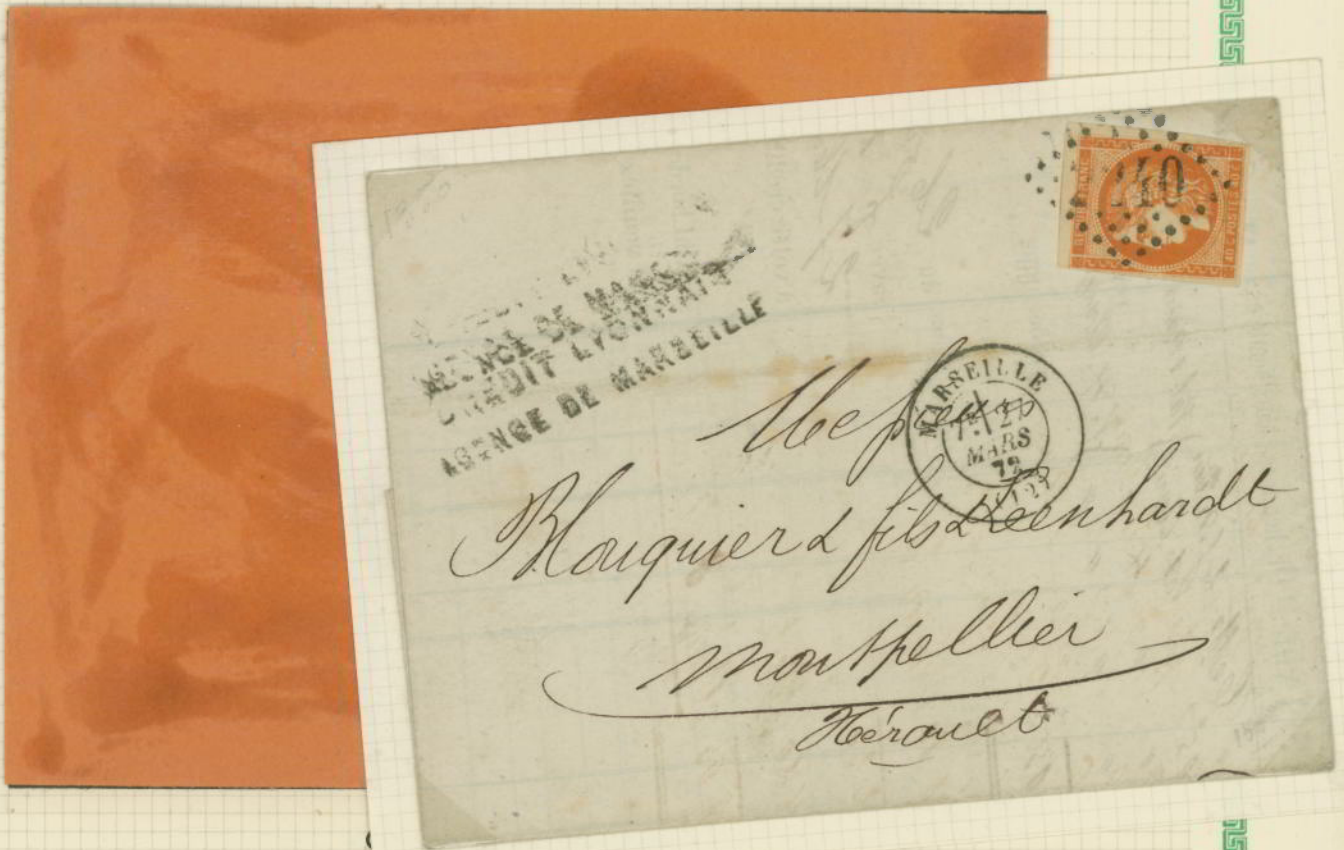 AGENCE DE MARSEILLE
CRÉDIT LYONNAIS
AGENCE DE MARSEILLE
40
40 C. POSTES 40 C.
MARSEILLE
27
MARS
72
(12)
Messieurs
Bouquier & fils & Leenhardt
Montpellier
Hérault